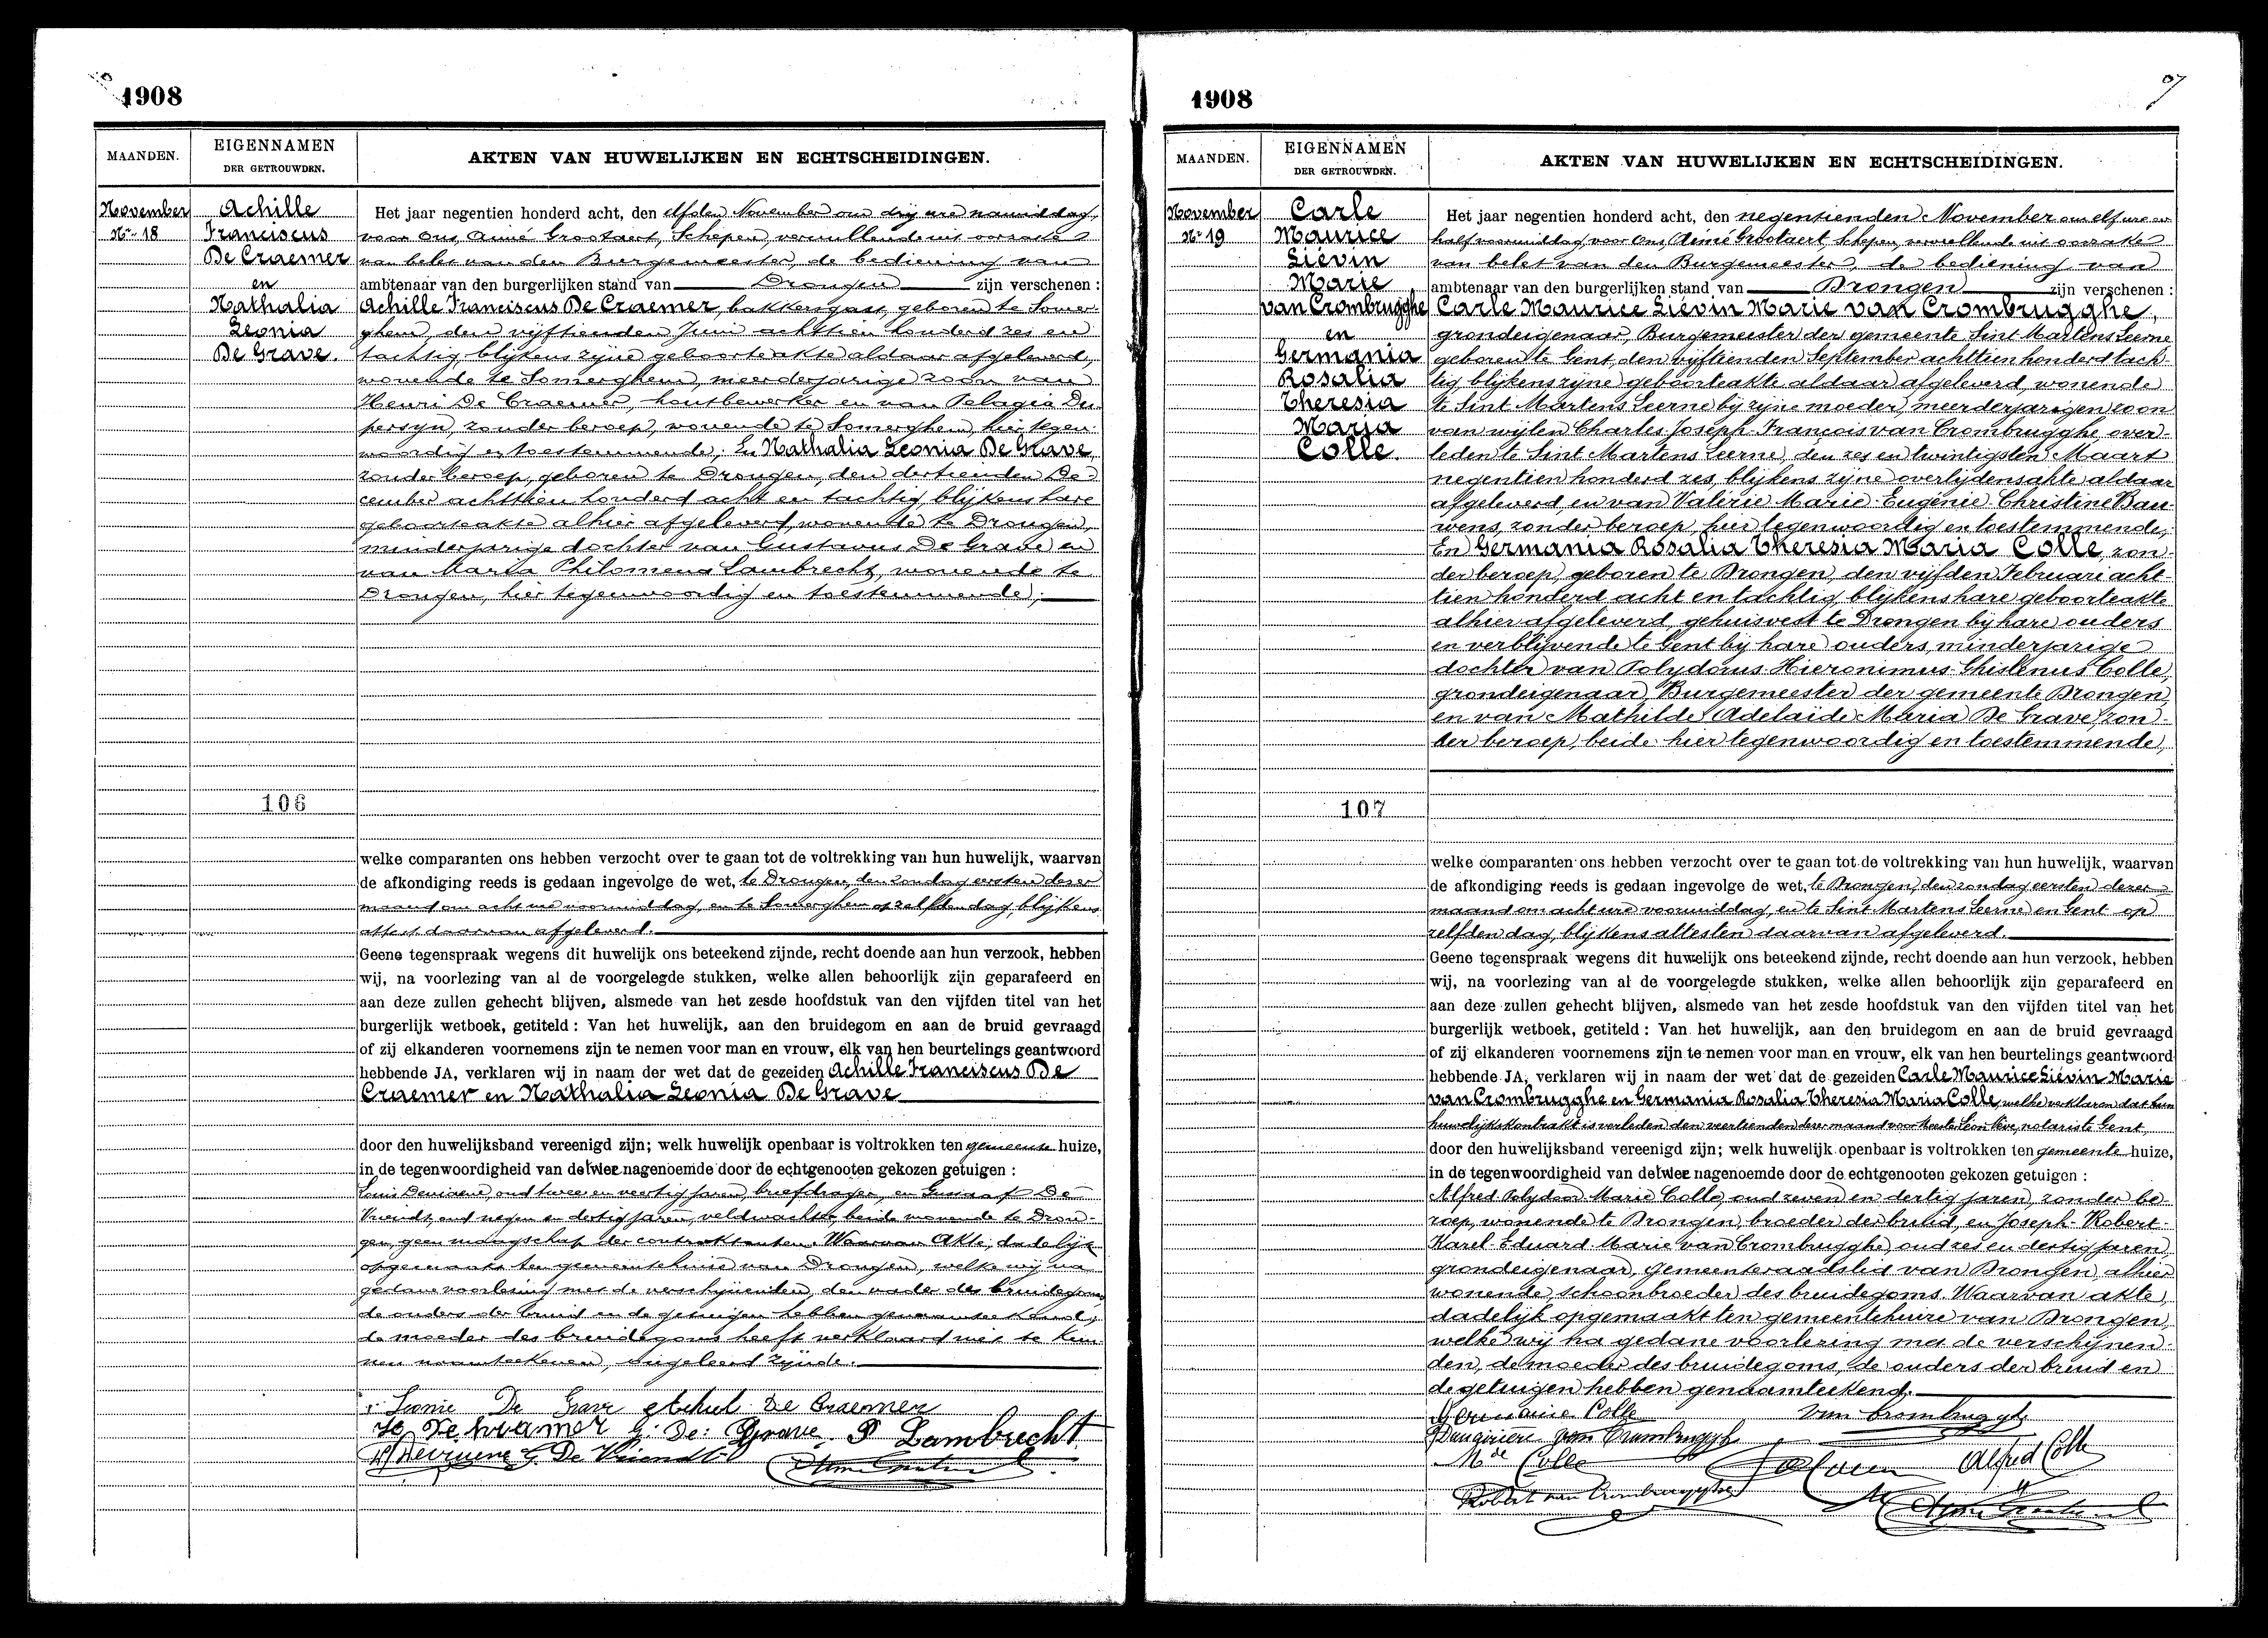 1908
MAANDEN.
EIGENNAMEN
DER GETROUWDEN.
AKTEN VAN HUWELIJKEN EN ECHTSCHEIDINGEN.
November
Nr. 18
Achille
Franciscus
De Craemer
en
Nathalia
Leonia
De Grave.
106
Het jaar negentien honderd acht, den elfden November om drij ure namiddag,
voor Ons, Aimé Grootaert, Schepen, vervullende uit oorzake
van belet van den Burgemeester, de bediening van
ambtenaar van den burgerlijken stand van Drongen zijn verschenen :
Achille Franciscus De Craemer, bakkersgast, geboren te Somer-
ghem, den vijftienden Juni achttien honderd zes en
tachtig, blijkens zijne geboorteakte aldaar afgeleverd,
wonende te Somerghem, meerderjarige zoon van
Henri De Craemer, houtbewerker en van Pelagia Du-
persyn, zonder beroep, wonende te Somerghem, hier tegen-
woordig en toestemmende; En Nathalia Leonia De Grave,
zonder beroep, geboren te Drongen, den dertienden De-
cember achttien honderd acht en tachtig, blijkens hare
geboorteakte alhier afgeleverd, wonende te Drongen,
minderjarige dochter van Gustavus De Grave en
van Maria Philomena Lambrecht, wonende te
Drongen, hier tegenwoordig en toestemmende;
welke comparanten ons hebben verzocht over te gaan tot de voltrekking van hun huwelijk, waarvan
de afkondiging reeds is gedaan ingevolge de wet, te Drongen, den zondag eersten dezer
maand om acht ure voormiddag, en te Somerghem op zelfden dag, blijkens
attest daarvan afgeleverd.
Geene tegenspraak wegens dit huwelijk ons beteekend zijnde, recht doende aan hun verzoek, hebben
wij, na voorlezing van al de voorgelegde stukken, welke allen behoorlijk zijn geparafeerd en
aan deze zullen gehecht blijven, alsmede van het zesde hoofdstuk van den vijfden titel van het
burgerlijk wetboek, getiteld : Van het huwelijk, aan den bruidegom en aan de bruid gevraagd
of zij elkanderen voornemens zijn te nemen voor man en vrouw, elk van hen beurtelings geantwoord
hebbende JA, verklaren wij in naam der wet dat de gezeiden Achille Franciscus De
Craemer en Nathalia Leonia De Grave
door den huwelijksband vereenigd zijn; welk huwelijk openbaar is voltrokken ten gemeente huize,
in de tegenwoordigheid van de twee nagenoemde door de echtgenooten gekozen getuigen :
Louis oud twee en veertig jaren, briefdrager, en Gustaaf De
Vriendt, oud negen en dertig jaren, veldwachter, beide wonende te Dron-
gen, geen maagschap der contraktanten. Waarvan Akte, dadelijk
opgemaakt ten gemeentehuize van Drongen, welke wij na
gedane voorlezing met de verschijnenden, den vader des bruidegoms,
de ouders der bruid en de getuigen hebben genaamteekend,
de moeder des bruidegoms heeft verklaard niet te kun-
nen naamteekenen, ongeleerd zijnde.
Leonie De Grave Achiel De Craemer
De Kramer G. De Grave P Lambrecht
G. De Vriendt
1908
MAANDEN.
EIGENNAMEN
DER GETROUWDEN.
AKTEN VAN HUWELIJKEN EN ECHTSCHEIDINGEN.
November
Nr. 19
Carle
Maurice
Liévin
Marie
van Crombrugghe
en
Germania
Rosalia
Theresia
Maria
Colle.
107
Het jaar negentien honderd acht, den negentienden November om elf ure en
half voormiddag, voor Ons, Aimé Grootaert, Schepen, vervullende uit oorzake
van belet van den Burgemeester, de bediening van
ambtenaar van den burgerlijken stand van Drongen zijn verschenen :
Carle Maurice Liévin Marie van Crombrugghe,
grondeigenaar, Burgemeester der gemeente Sint Martens Leerne
geboren te Gent, den vijftienden September achttien honderd tach-
tig, blijkens zijne geboorteakte aldaar afgeleverd, wonende
te Sint Martens Leerne bij zijne moeder, meerderjarigen zoon
van wijlen Charles Joseph-François van Crombrugghe, over-
leden te Sint Martens Leerne, den zes en twintigsten Maart
negentien honderd zes, blijkens zijne overlijdensakte aldaar
afgeleverd, en van Valérie-Marie-Eugénie-Christine Bau-
wens, zonder beroep, hier tegenwoordig en toestemmende;
En Germania Rosalia Theresia Maria Colle, zon-
der beroep, geboren te Drongen, den vijfden Februari acht-
tien honderd acht en tachtig, blijkens hare geboorteakte
alhier afgeleverd, gehuisvest te Drongen bij hare ouders
en verblijvende te Gent bij hare ouders, minderjarige
dochter van Polydorus-Hieronimus-Ghislenus Colle,
grondeigenaar, Burgemeester der gemeente Drongen,
en van Mathilde Adelaïde Maria De Grave, zon-
der beroep, beide hier tegenwoordig en toestemmende,
welke comparanten ons hebben verzocht over te gaan tot de voltrekking van hun huwelijk, waarvan
de afkondiging reeds is gedaan ingevolge de wet, te Drongen, den zondag eersten dezer
maand om acht ure voormiddag, en te Sint Martens Leerne en Gent op
zelfden dag, blijkens attesten daarvan afgeleverd.
Geene tegenspraak wegens dit huwelijk ons beteekend zijnde, recht doende aan hun verzoek, hebben
wij, na voorlezing van al de voorgelegde stukken, welke allen behoorlijk zijn geparafeerd en
aan deze zullen gehecht blijven, alsmede van het zesde hoofdstuk van den vijfden titel van het
burgerlijk wetboek, getiteld : Van het huwelijk, aan den bruidegom en aan de bruid gevraagd
of zij elkanderen voornemens zijn te nemen voor man en vrouw, elk van hen beurtelings geantwoord
hebbende JA, verklaren wij in naam der wet dat de gezeiden Carle Maurice Liévin Marie
van Crombrugghe en Germania Rosalia Theresia Maria Colle, welke verklaren dat hun
huwelijkskontrakt is verleden den veertienden dezer maand voor Meester Léon Nève, notaris te Gent,
door den huwelijksband vereenigd zijn; welk huwelijk openbaar is voltrokken ten gemeente huize,
in de tegenwoordigheid van de twee nagenoemde door de echtgenooten gekozen getuigen :
Alfred Polydoor Marie Colle, oud zeven en dertig jaren, zonder be-
roep, wonende te Drongen, broeder der bruid, en Joseph-Robert-
Karel-Eduard-Marie van Crombrugghe, oud zes en dertig jaren,
grondeigenaar, gemeenteraadslid van Drongen, alhier
wonende, schoonbroeder des bruidegoms. Waarvan akte,
dadelijk opgemaakt ten gemeentehuize van Drongen,
welke wij na gedane voorlezing met de verschijnen-
den, de moeder des bruidegoms, de ouders der bruid en
de getuigen hebben genaamteekend.
Germaine Colle van Crombrugghe
van Crombrugghe
Mde Colle Alfred Colle
Robert van Crombrugghe